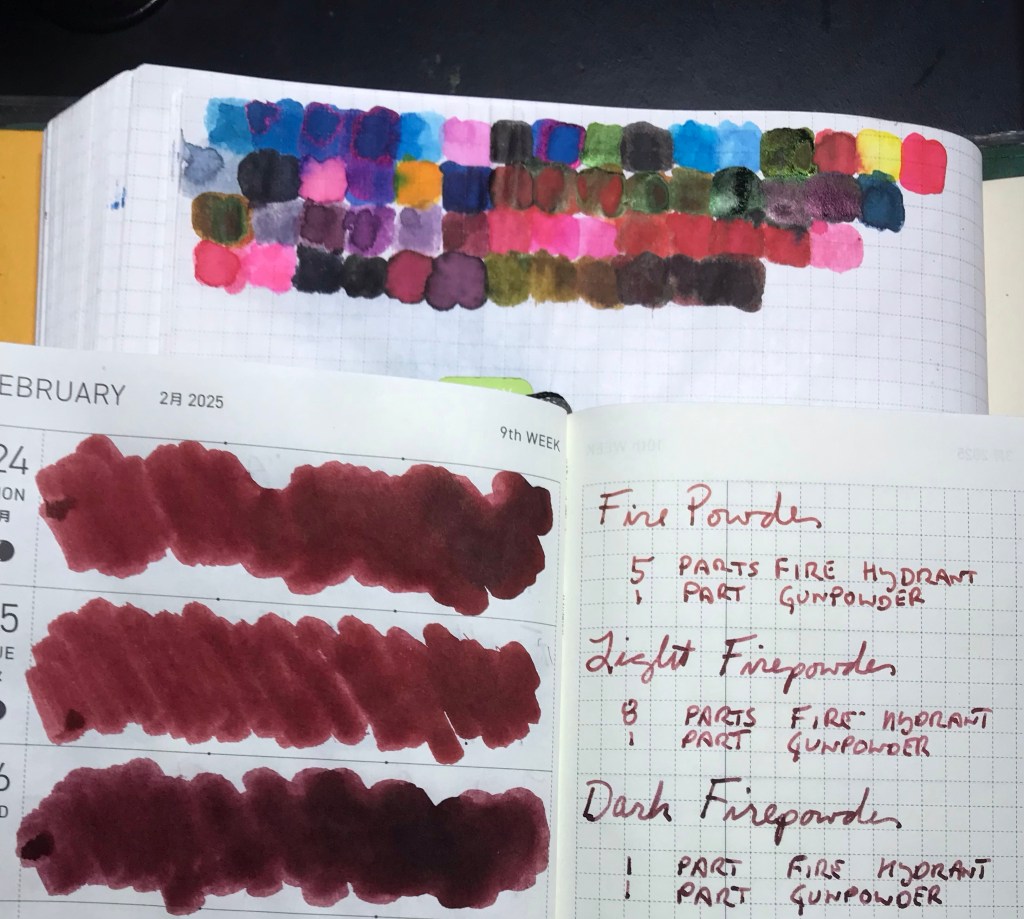 EBRUARY 2月 2025
9th WEEK
24
ON
月
5
UE
6
D
Fire Powder
5 PARTS FIRE HYDRANT
1 PART GUNPOWDER
Light Firepowder
8 PARTS FIRE HYDRANT
1 PART GUNPOWDER
Dark Firepowder
1 PART FIRE HYDRANT
1 PART GUNPOWDER